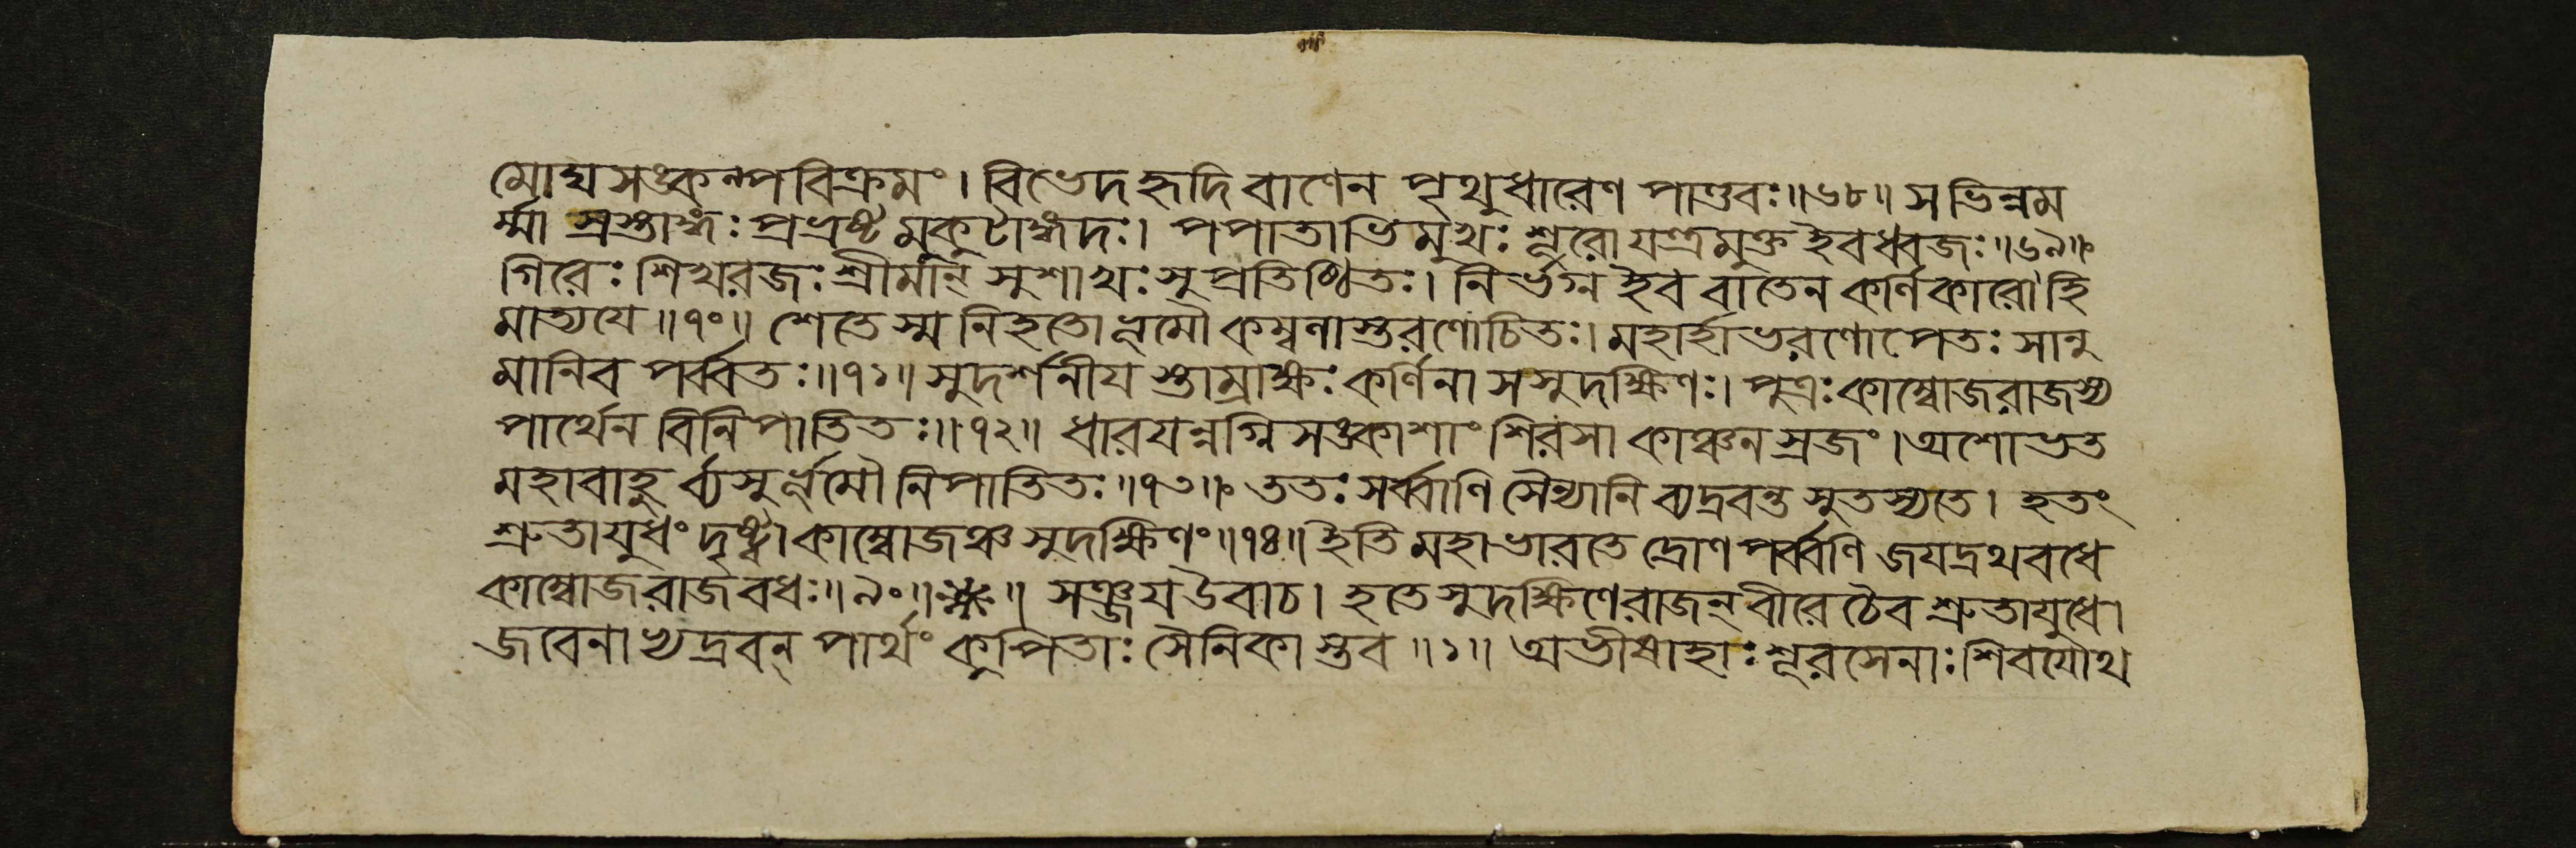 মোঘসঙ্কল্পবিক্রমং। বিভেদহৃদি বাণেন পৃথুধারেণ পাণ্ডবঃ॥৬৮॥ সভিন্নম
র্ম্মা স্রস্তাঙ্গঃ প্রভ্রষ্টমুকুটাঙ্গদঃ। পপাতাভিমুখঃ শূরো যন্ত্রমুক্ত ইবধ্বজঃ॥৬৯॥
গিরেঃ শিখরজঃ শ্রীমান্ সুশাখঃ সুপ্রতিষ্ঠিতঃ। নির্ভগ্ন ইব বাতেন কর্ণিকারো হি
মাত্যযে॥৭০॥ শেতে স্ম নিহতো ভূমৌ কম্বলাস্তরণোচিতঃ। মহার্হাভরণোপেতঃ সানু
মানিব পর্ব্বতঃ॥৭১॥ সুদর্শনীয স্তাম্রাক্ষঃ কর্ণিনা সসুদক্ষিণঃ। পুত্রঃ কাম্বোজরাজস্য
পার্থেন বিনিপাতিতঃ॥৭২॥ ধারযন্নগ্নিসঙ্কাশাং শিরসা কাঞ্চনস্রজং। অশোভত
মহাবাহু র্ব্যসুর্ভূমৌ নিপাতিতঃ॥৭৩॥ ততঃ সর্ব্বাণি সৈন্যানি ব্যদ্রবন্ত সুতস্যতে। হতং
শ্রুতাযুধং দৃষ্ট্বা কাম্বোজঞ্চ সুদক্ষিণং॥৭৪॥ ইতি মহাভারতে দ্রোণপর্ব্বণি জযদ্রথবধে
কাম্বোজরাজবধঃ॥৯০॥ সঞ্জয উবাচ। হতে সুদক্ষিণে রাজন্ বীরে চৈব শ্রুতাযুধে।
জবেনাভ্যদ্রবন্ পার্থং কুপিতাঃ সৈনিকাস্তব॥১॥ অভীষাহাঃ শূরসেনাঃ শিবযোথ